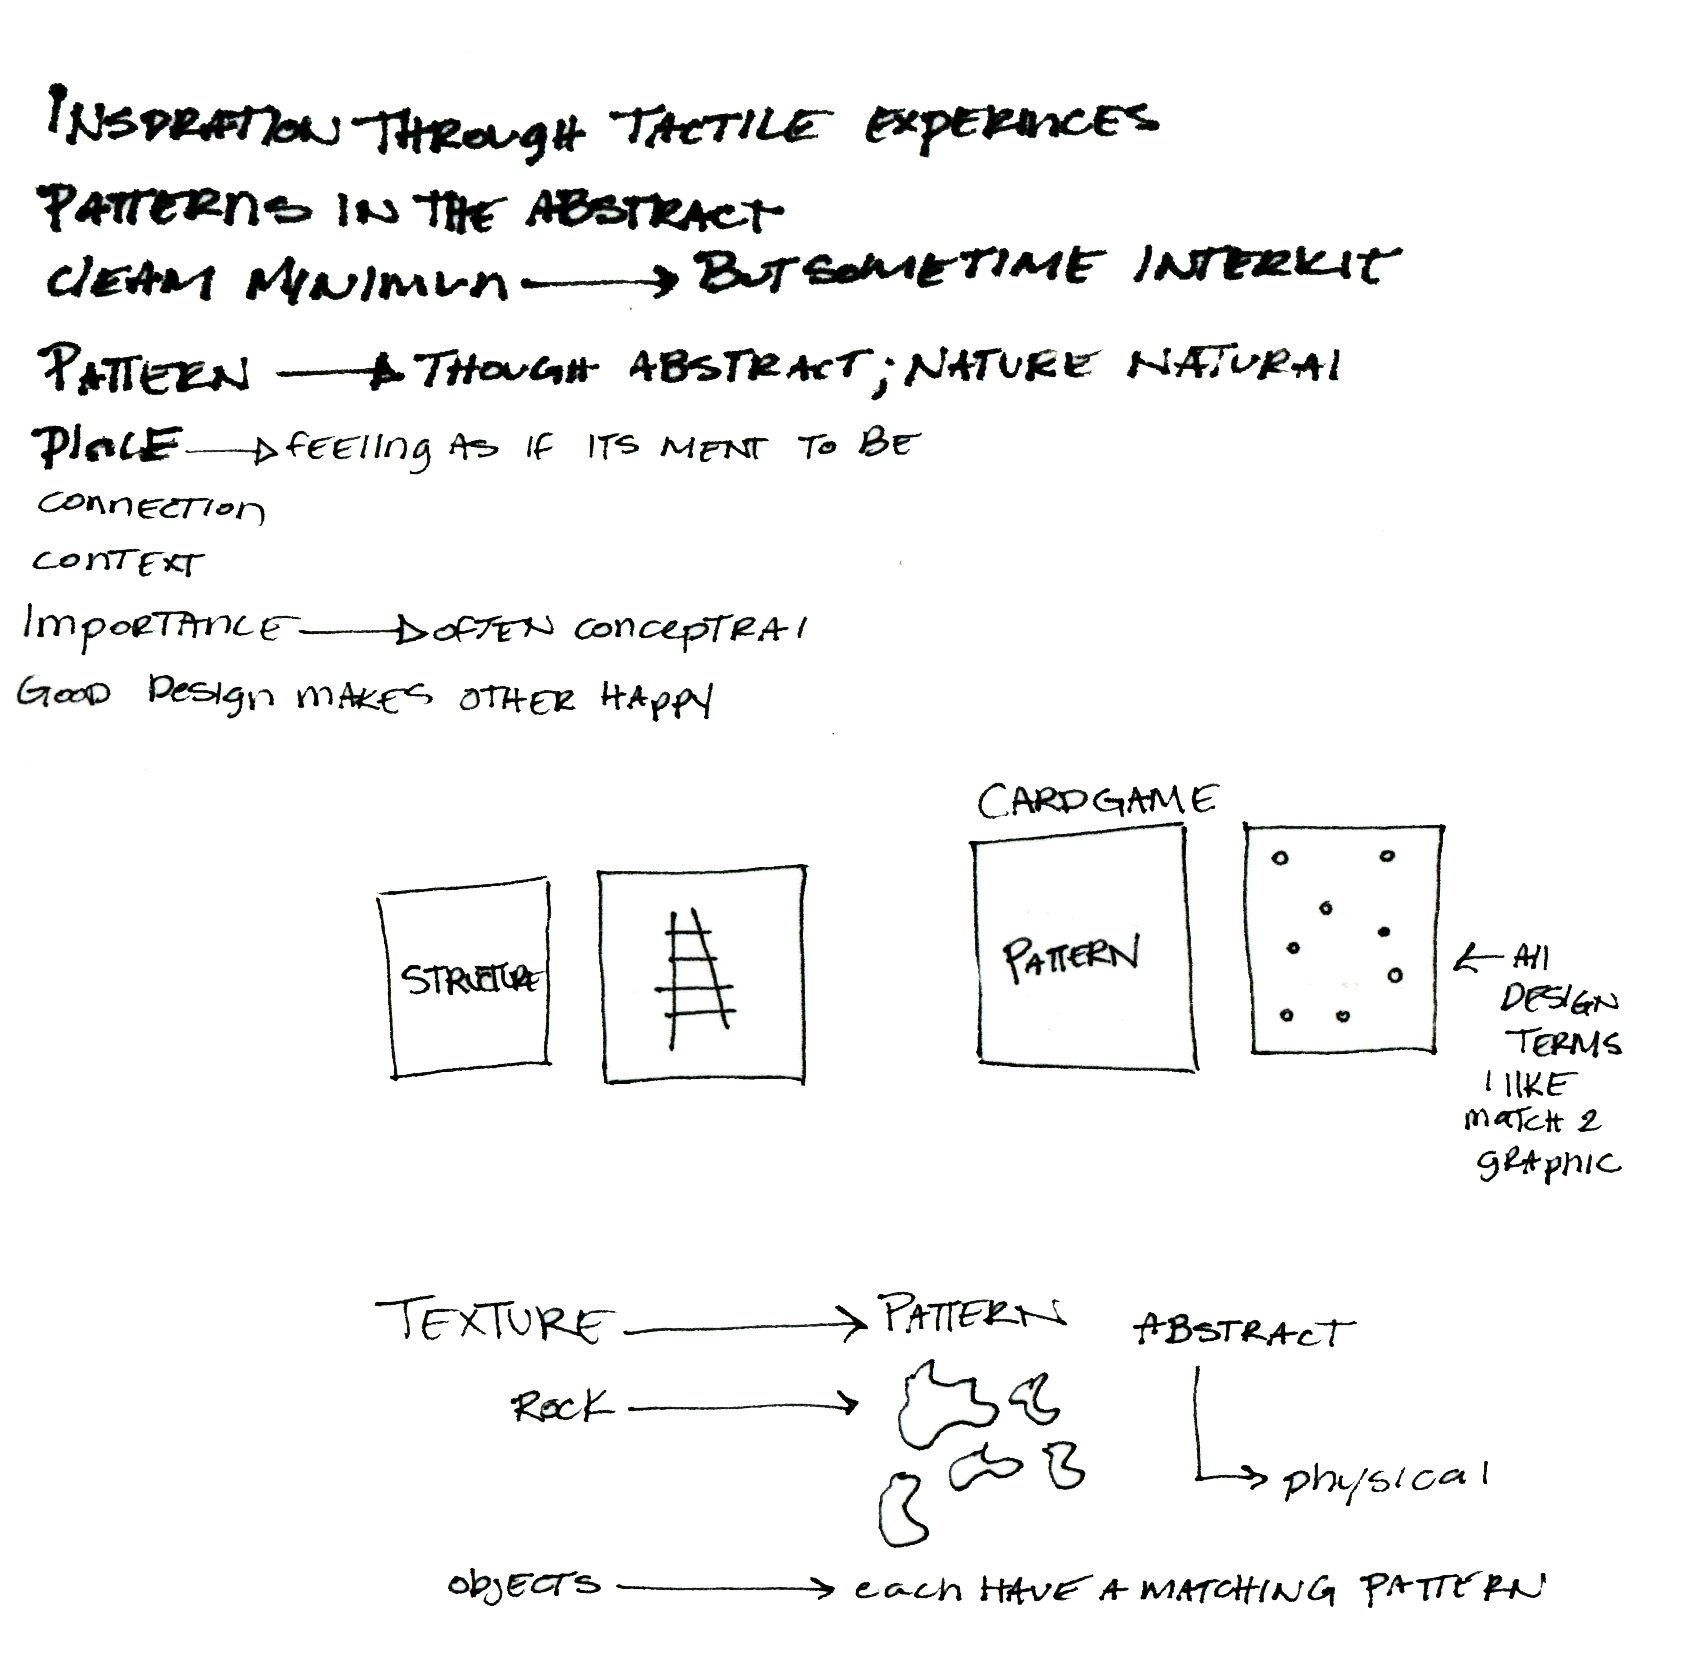 INSPRATION THROUGH TACTILE EXPERINCES
PATTERNS IN THE ABSTRACT
CLEAM MINIMUN → BUT SOMETIME INTERKIT
PATTERN → THOUGH ABSTRACT; NATURE NATURAL
PLACE → FEELING AS IF ITS MENT TO BE
CONNECTION
CONTEXT
IMPORTANCE → OFTEN CONCEPTRAL
GOOD DESIGN MAKES OTHER HAPPY
CARDGAME
STRUCTURE
PATTERN
← All
DESIGN
TERMS
I lIKE
MATCH 2
GRAPHIC
TEXTURE → PATTERN
ABSTRACT
ROCK →
→ physical
objECTS → each HAVE A MATCHING PATTERN